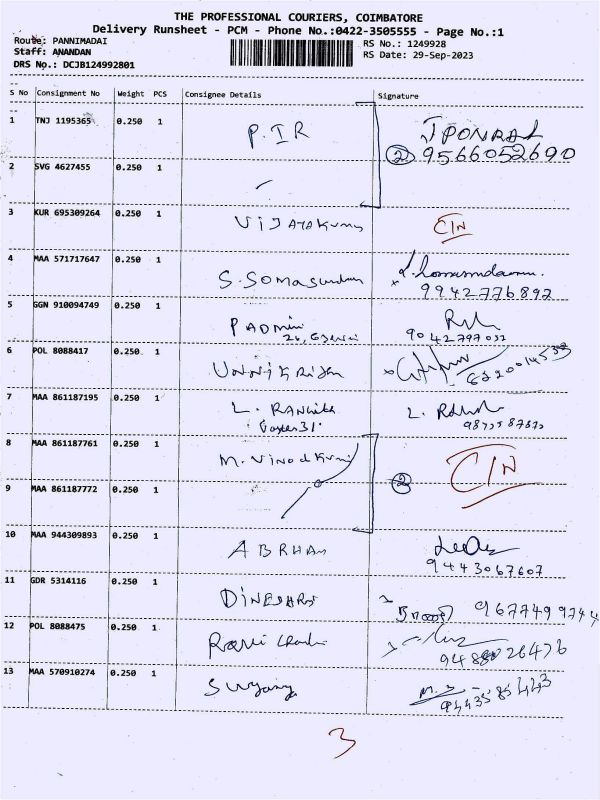 THE PROFESSIONAL COURIERS, COIMBATORE
Delivery Runsheet - PCM - Phone No.:0422-3505555 - Page No.:1
Route: PANNIMADAI
RS No.: 1249928
Staff: ANANDAN
RS Date: 29-Sep-2023
DRS No.: DCJB124992801
S No Consignment No Weight PCS Consignee Details Signature
1 TNJ 1195365 0.250 1 P.IR J PONRAJ
② 9566052690
2 SVG 4627455 0.250 1
3 KUR 695309264 0.250 1 VIJAYAKumar C/N
4 MAA 571717647 0.250 1 S. Somasundram
9942776892
5 GGN 910094749 0.250 1 PADMini
6 POL 8088417 0.250 1 UNNIKRISHn
7 MAA 861187195 0.250 1 L.
L.
8 MAA 861187761 0.250 1 M. Vinodkumar
② C/N
9 MAA 861187772 0.250 1
10 MAA 944309893 0.250 1 ABRHAM
9443067607
11 GDR 5314116 0.250 1 DINESHRS 9677499744
12 POL 8088475 0.250 1 Ravi
13 MAA 570910274 0.250 1
3